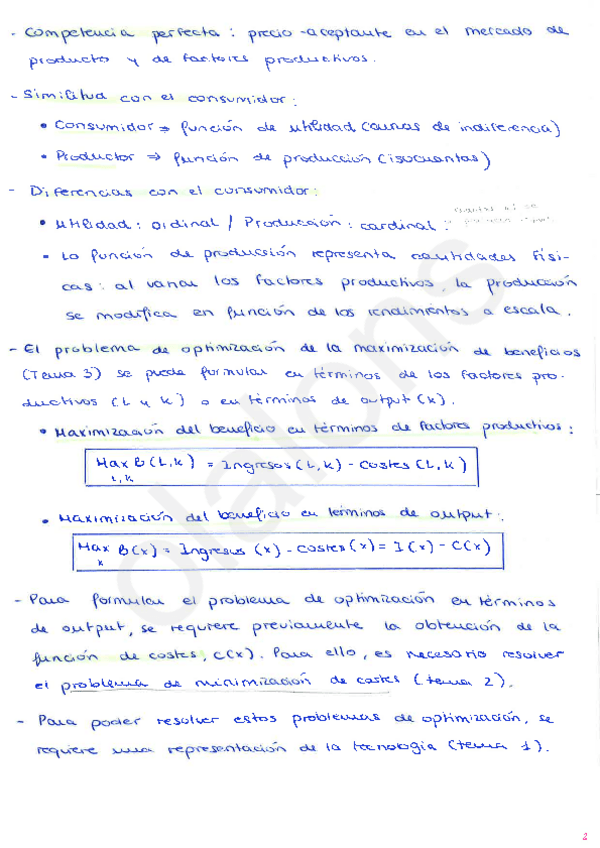 - Competencia perfecta: precio-aceptante en el mercado de
producto y de factores productivos.
- Similitud con el consumidor:
• Consumidor ⇒ función de utilidad (curvas de indiferencia)
• Productor ⇒ función de producción (isocuantas)
- Diferencias con el consumidor:
• Utilidad: ordinal / Producción: cardinal.
• La función de producción representa cantidades físi-
cas: al variar los factores productivos, la producción
se modifica en función de los rendimientos a escala.
- El problema de optimización de la maximización de beneficios
(Tema 3) se puede formular en términos de los factores pro-
ductivos (L y K) o en términos de output (x).
• Maximización del beneficio en términos de factores productivos:
Max B(L,K) = Ingresos (L,K) - Costes (L,K)
L,K
• Maximización del beneficio en términos de output:
Max B(x) = Ingresos (x) - Costes (x) = I(x) - C(x)
x
- Para formular el problema de optimización en términos
de output, se requiere previamente la obtención de la
función de costes, C(x). Para ello, es necesario resolver
el problema de minimización de costes (tema 2).
- Para poder resolver estos problemas de optimización, se
requiere una representación de la tecnología (tema 1).
olalons
2